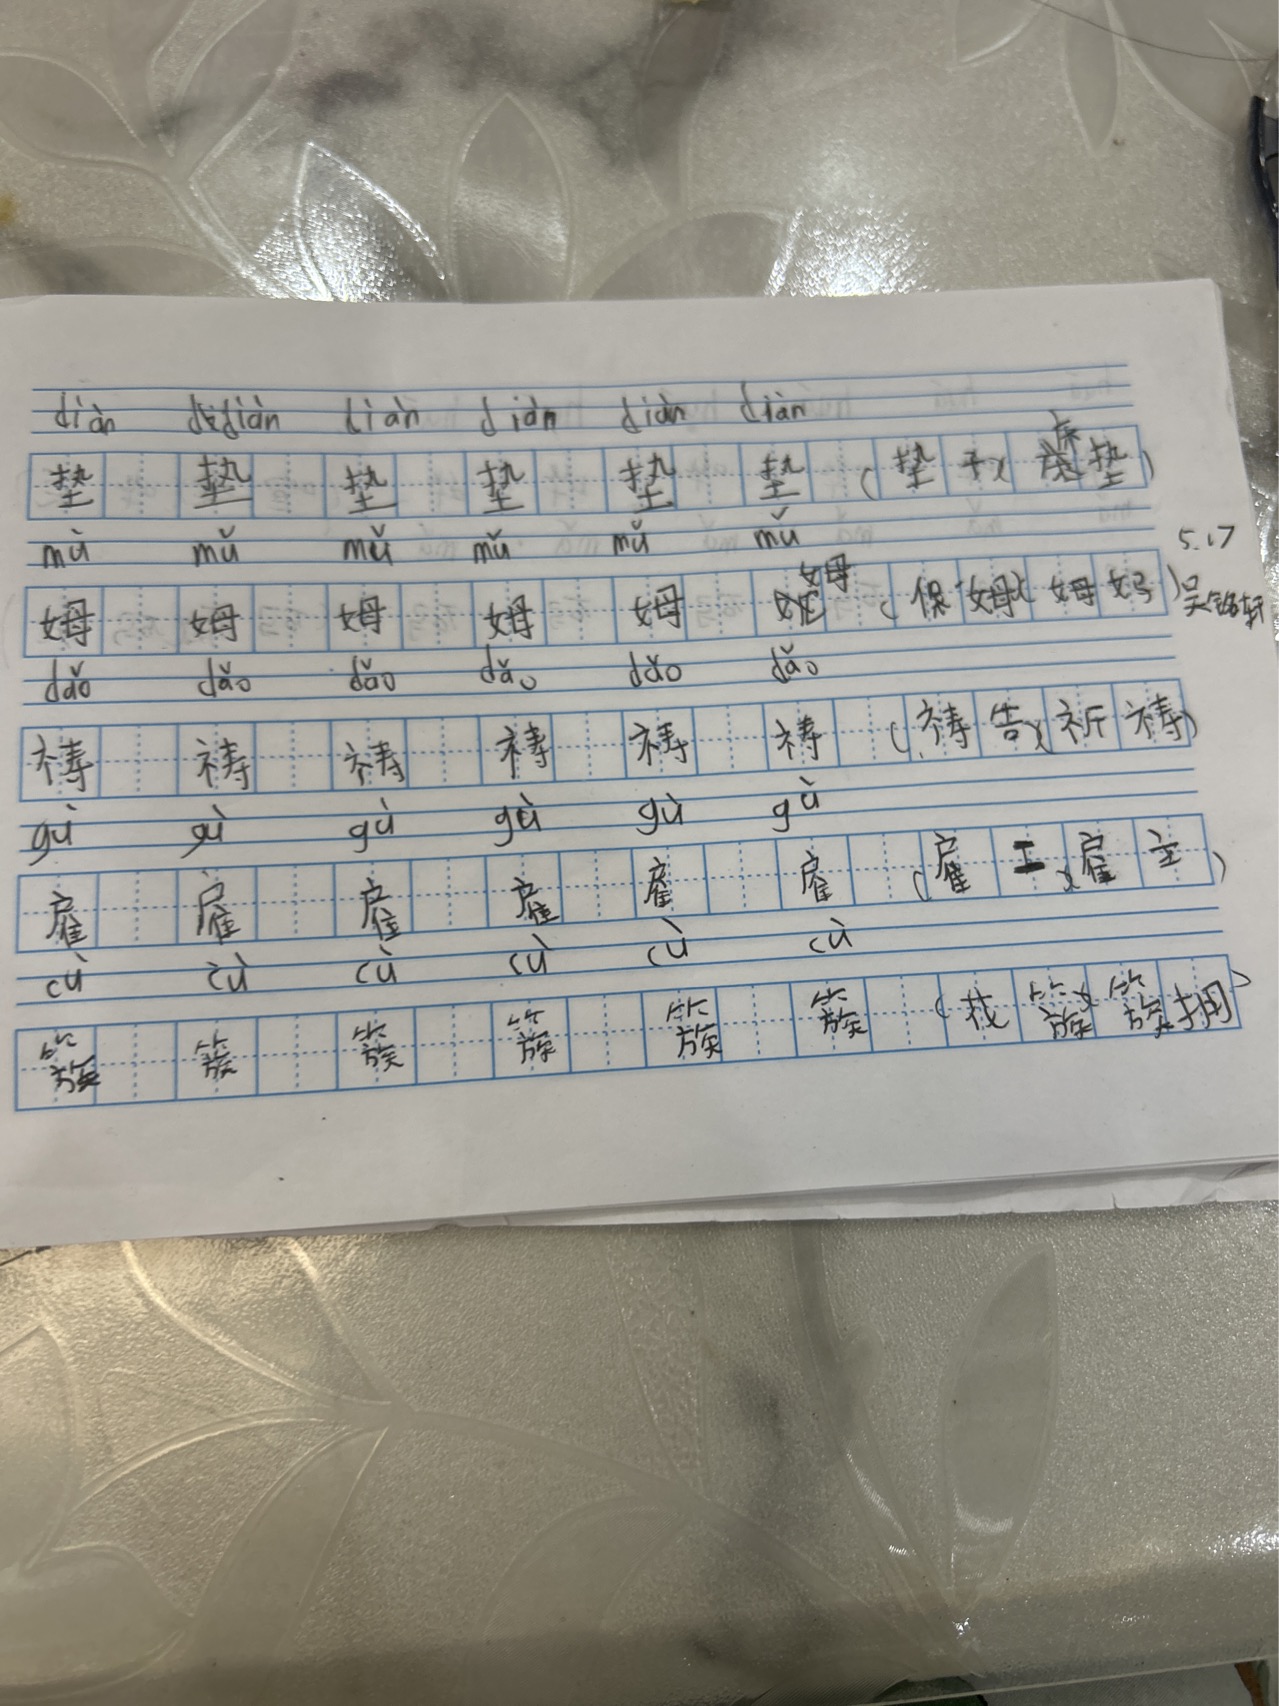 diàn diàn diàn diàn diàn diàn
垫 垫 垫 垫 垫 垫 (垫子)(床垫)
mù mǔ mǔ mǔ mǔ mǔ
5.17
姆 姆 姆 姆 姆 姆 (保姆)(姆妈)
dǎo dǎo dǎo dǎo dǎo dǎo
祷 祷 祷 祷 祷 祷 (祷告)(祈祷)
gù gù gù gù gù gù
雇 雇 雇 雇 雇 雇 (雇工)(雇主)
cù cù cù cù cù cù
簇 簇 簇 簇 簇 簇 (花簇)(簇拥)